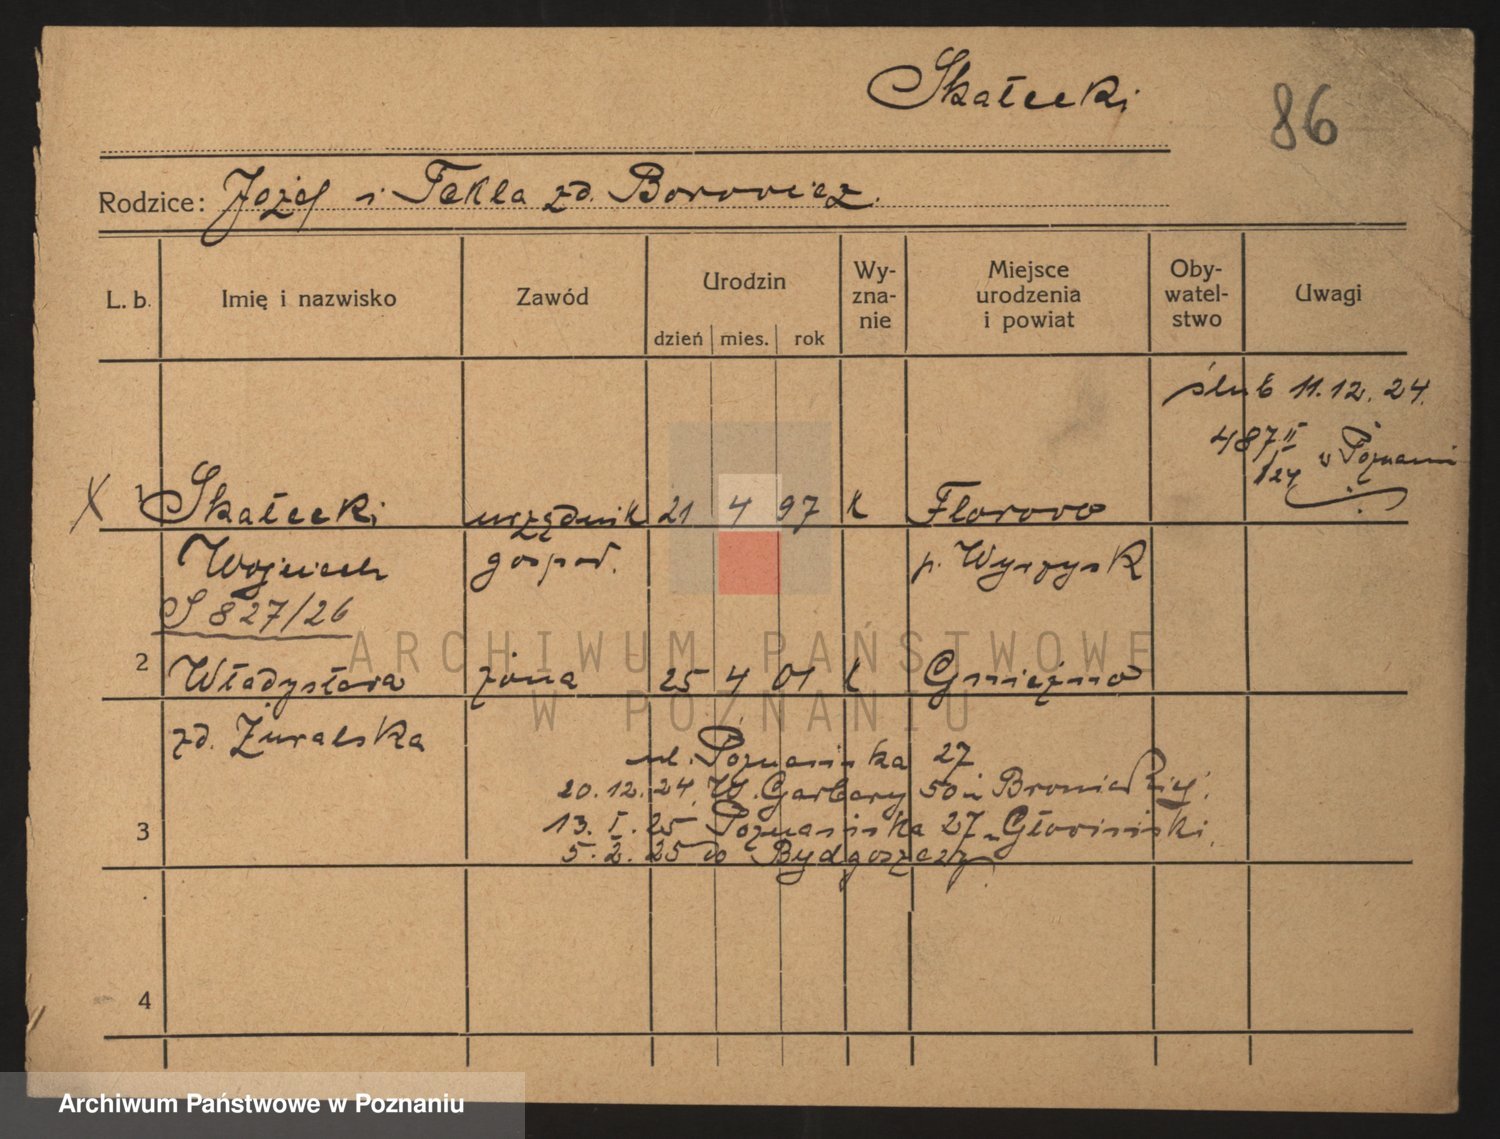 Skałecki
86
Rodzice: Józef i Tekla zd. Borowicz.
L. b. Imię i nazwisko Zawód Urodzin Wy-zna-nie Miejsce urodzenia i powiat Oby-watel-stwo Uwagi
dzień mies. rok
ślub 11.12.24.
487 II/24 w Poznaniu
X 1 Skałecki urzędnik 21 4 97 k Florowo
Wojciech gospod. p. Wyrzysk
S 827/26
2 Władysława żona 25 4 01 k Gniezno
zd. Żuralska
ul. Poznańska 27
20.12.24. W. Garbary 50
3 13. I. 25 Poznańska 27 Głowiński
5. 2. 25 do Bydgoszczy
4
ARCHIWUM PAŃSTWOWE
W POZNANIU
Archiwum Państwowe w Poznaniu